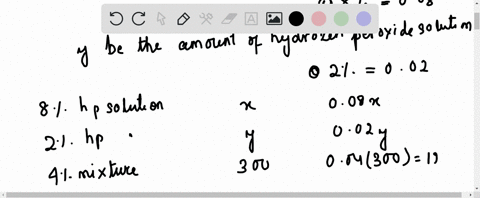 y be the amount of hydrogen peroxide solution
2% = 0.02
8% hp solution x 0.08x
2% hp y 0.02y
4% mixture 300 0.04(300) = 12